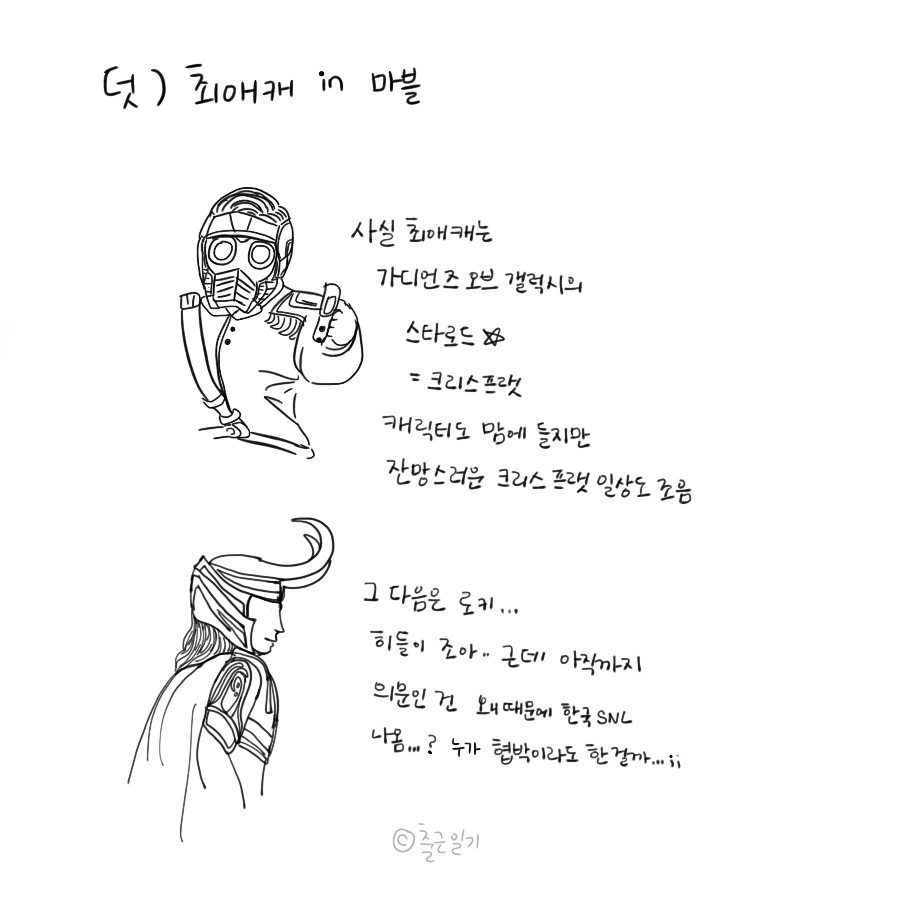 덧) 최애캐 in 마블
사실 최애캐는
가디언즈 오브 갤럭시의
스타로드 ☆
= 크리스프랫
캐릭터도 맘에 들지만
잔망스러운 크리스프랫 일상도 조음
그 다음은 로키...
히들이 조아.. 근데 아직까지
의문인 건 왜때문에 한국 SNL
나옴...? 누가 협박이라도 한걸까...;;
©출근일기